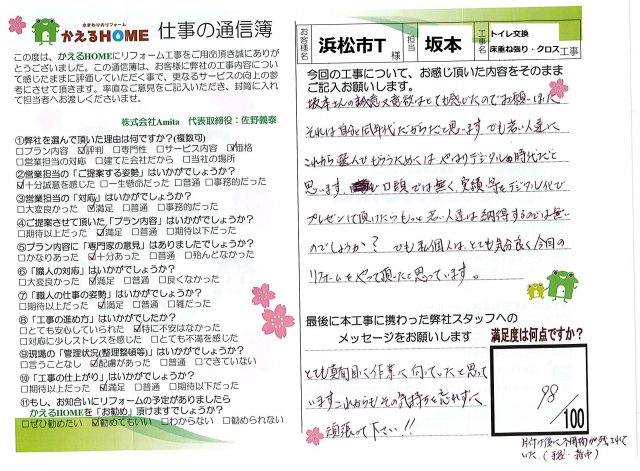 水まわりのリフォーム
かえるHOME 仕事の通信簿
この度は、かえるHOMEにリフォーム工事をご用命頂き誠にありが
とうございました。この通信簿は、お客様に弊社の工事内容につい
て感じたままに評価していただく事で、更なるサービスの向上の参
考にさせて頂きます。率直なご意見をご記入いただき、封筒に入れ
て担当者へお渡しくださいませ。
株式会社Amita 代表取締役:佐野義泰
①弊社を選んで頂いた理由は何ですか?(複数可)
□プラン内容 ☑評判 □専門性 □サービス内容 ☑価格
□営業担当の対応 □建てた会社だから □当社の場所
②営業担当の「ご提案する姿勢」はいかがでしょうか?
☑十分誠意を感じた □一生懸命だった □普通 □事務的だった
③営業担当の「対応」はいかがでしょうか?
□大変良かった ☑満足 □普通 □事務的だった
④ご提案させて頂いた「プラン内容」はいかがでしょうか?
□期待以上だった ☑満足 □普通 □期待以下だった
⑤プラン内容に「専門家の意見」はありましたでしょうか?
□かなりあった ☑十分あった □普通 □殆んどなかった
⑥「職人の対応」はいかがでしょうか?
□大変良かった ☑満足 □普通 □良くなかった
⑦「職人の仕事の姿勢」はいかがでしょうか?
□期待以上だった ☑満足 □普通 □雑だった
⑧「工事の進め方」はいかがでしたか?
□とても安心していられた ☑特に不安はなかった
□対応に少しストレスを感じた □とても不満を感じた
⑨現場の「管理状況(整理整頓等)」はいかがでしょうか?
□言うことなし ☑配慮があった □普通 □できていない
⑩「工事の仕上がり」はいかがでしょうか?
□期待以上だった ☑満足 □普通 □期待以下だった
⑪もし、お知合いにリフォームの予定がありましたら
かえるHOMEを「お勧め」頂けますでしょうか?
□ぜひ勧めたい ☑勧めてもいい □わからない □勧められない
お客様名 浜松市T様 担当 坂本 工事名 トイレ交換
床重ね張り・クロス工事
今回の工事について、お感じ頂いた内容をそのまま
ご記入お願いします。
坂本さんの誠意又意欲はとても感じたのでお願いした
それは自分と同年代だからだと思いますでも若い人達へ
これから選んでもらうためにはやはりデジタルの時代だと
思います、口頭では無く、実績等をデジタル化で
プレゼンして頂けたらもっと若い人達は納得するのでは無い
のでしょうか? でも私個人は、とても気分良く今回の
リフォームをやって頂いたと思っています。
最後に本工事に携わった弊社スタッフへの
メッセージをお願いします
とても真面目に作業へ向っていたと思って
いますこれからもその気持ちを忘れずに
頑張って下さい!!
満足度は何点ですか?
98
/100
片付け後に不用物が残されて
いた。